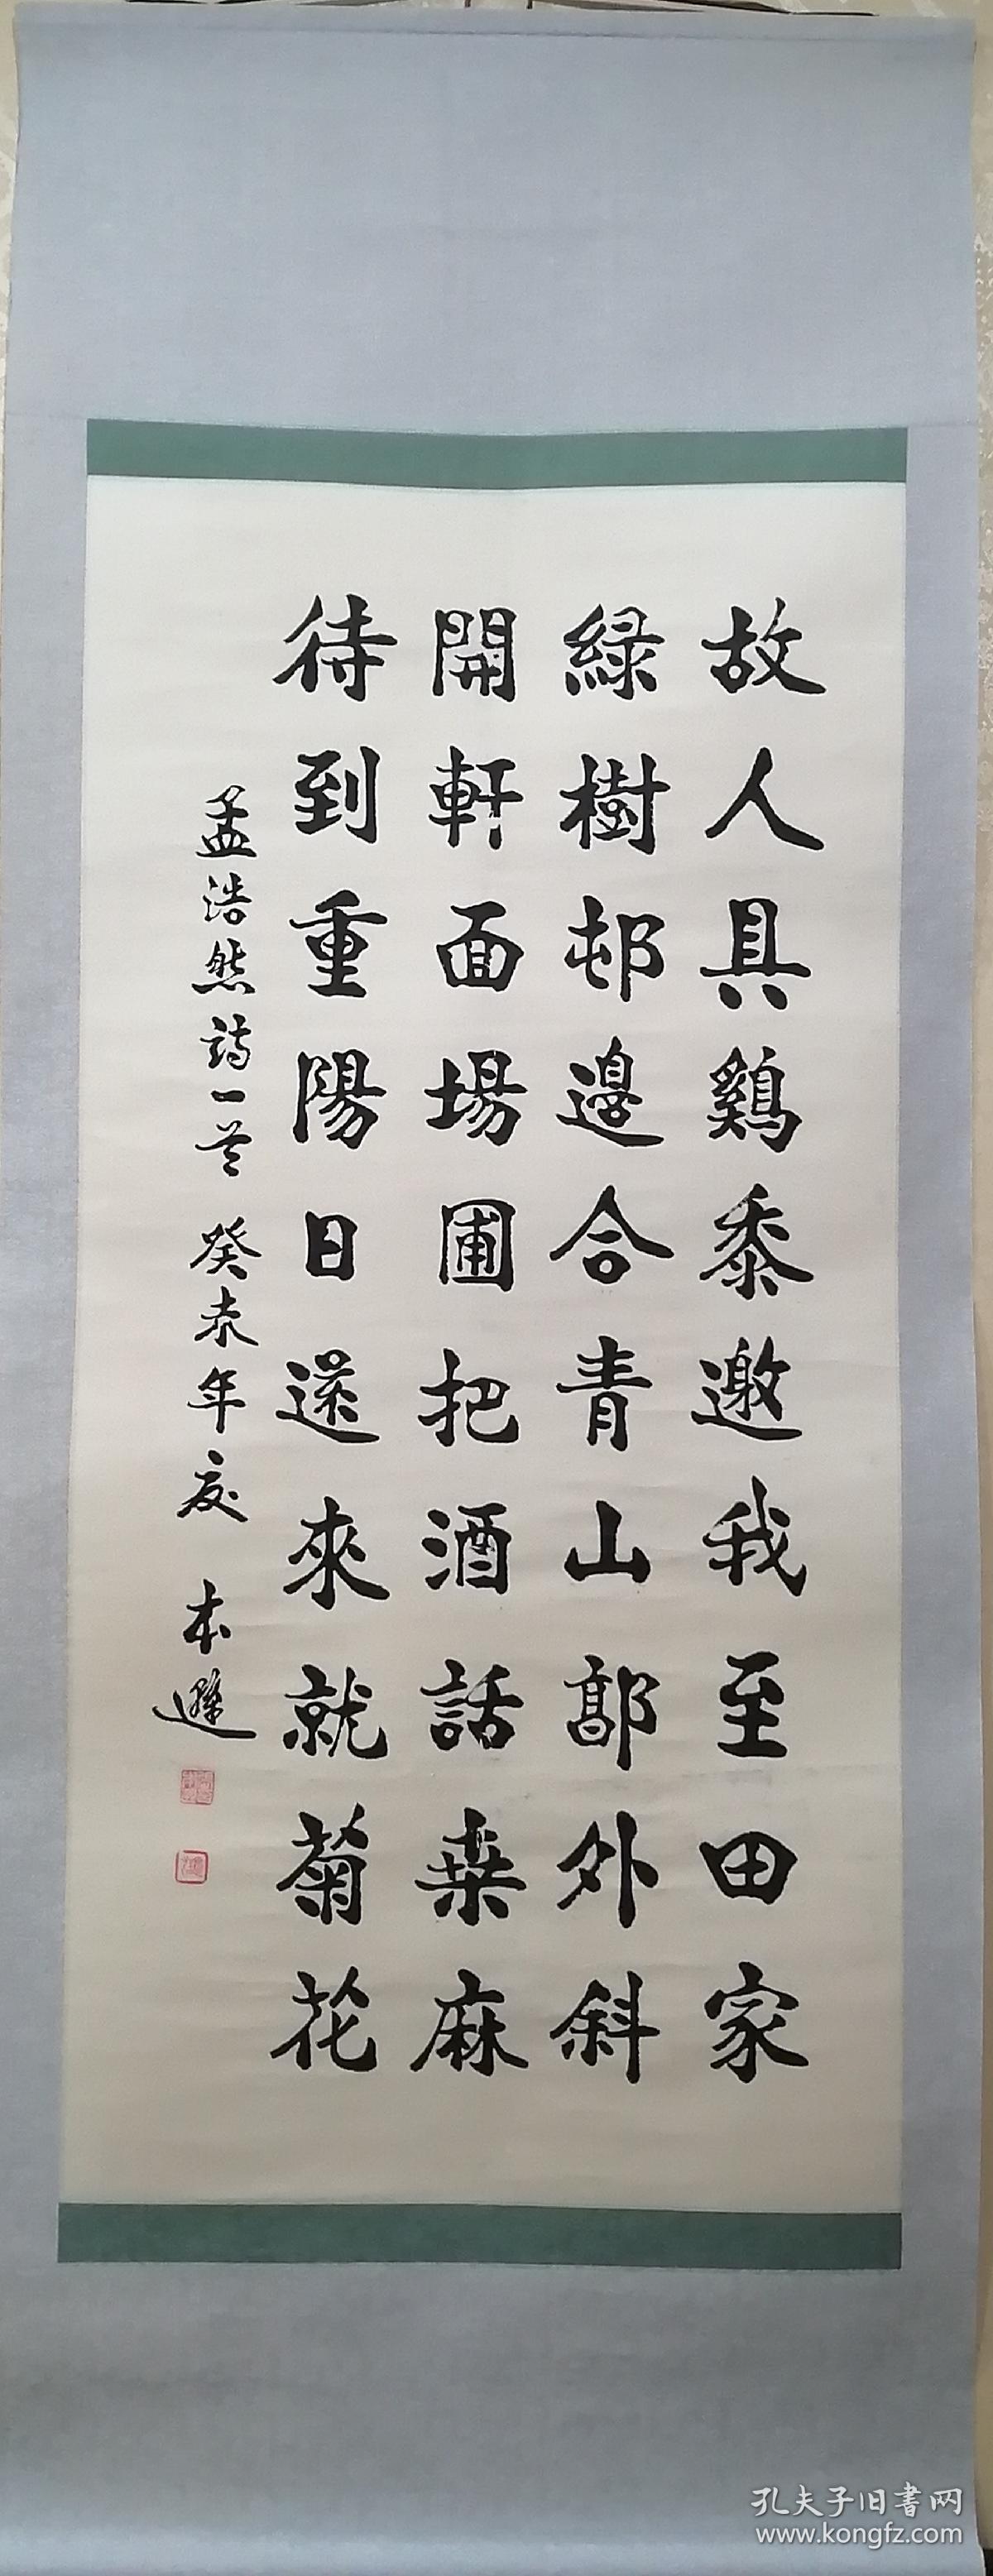 故人具鷄黍邀我至田家
綠樹邨邊合青山郭外斜
開軒面場圃把酒話桑麻
待到重陽日還來就菊花
孟浩然詩一首 癸未年夏 本遜
孔夫子旧書网
www.kongfz.com